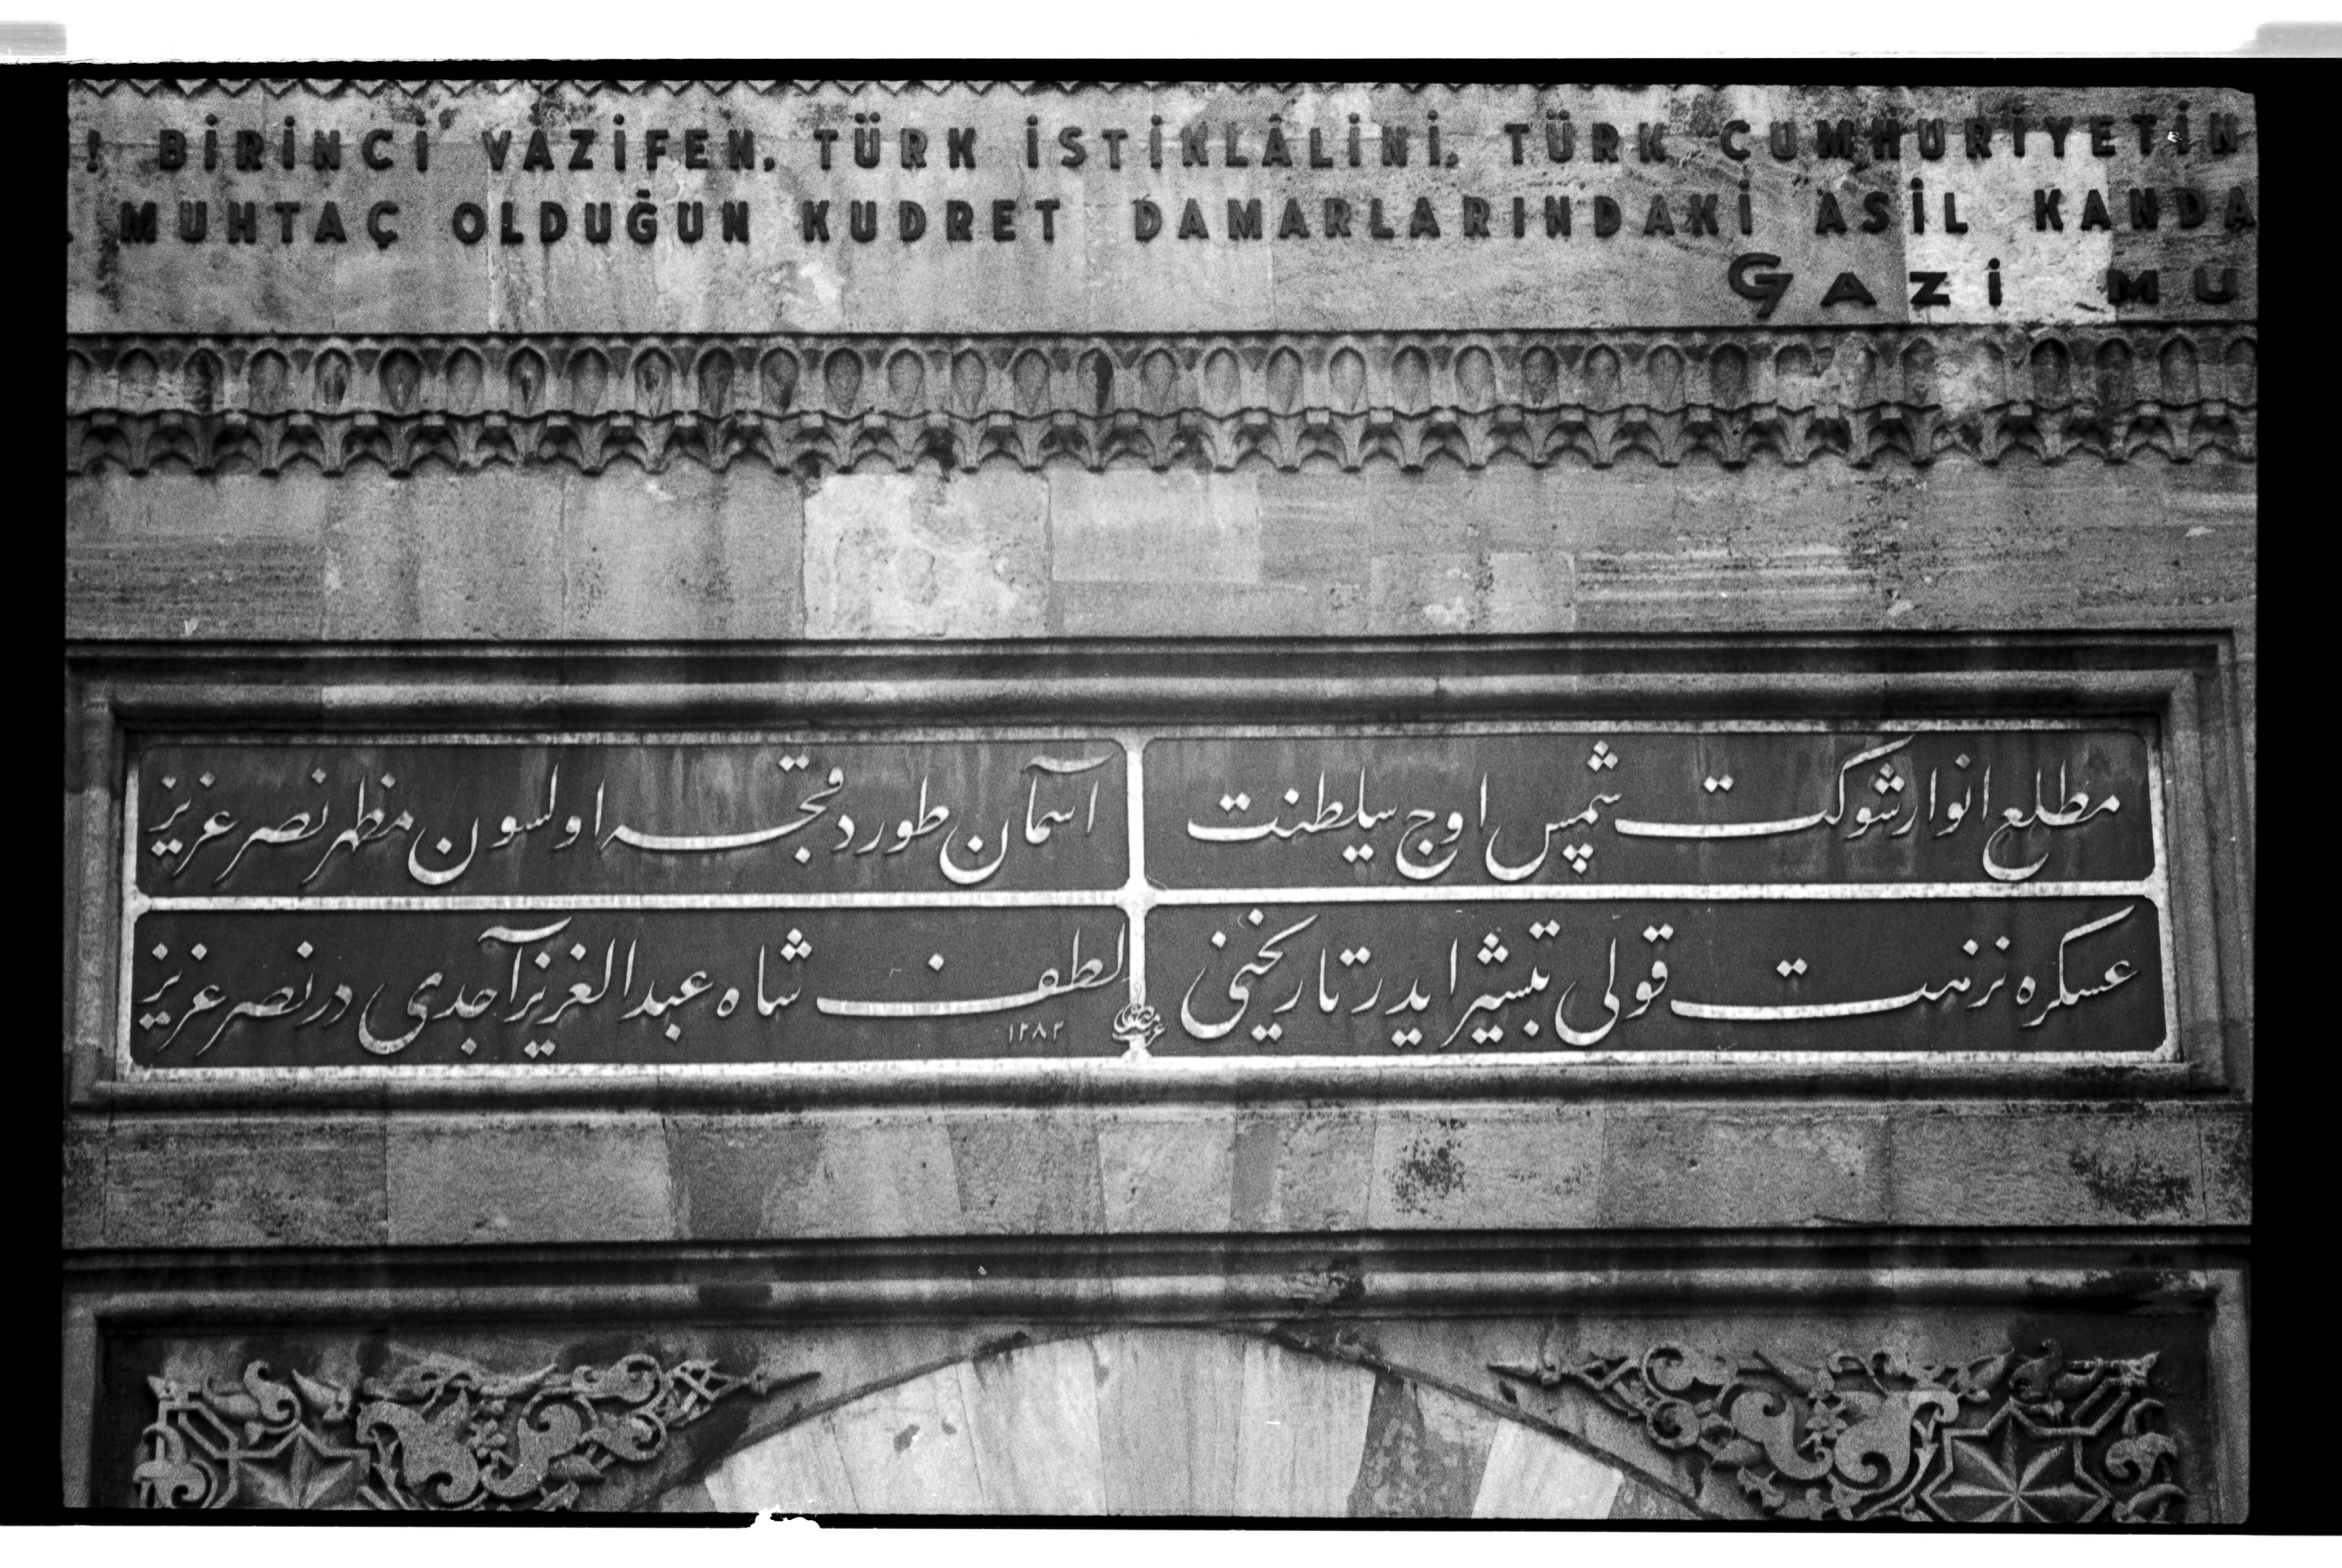 ! BİRİNCİ VAZİFEN, TÜRK İSTİKLÂLİNİ, TÜRK CUMHURİYETİN
. MUHTAÇ OLDUĞUN KUDRET DAMARLARINDAKİ ASİL KANDA
GAZİ MU
مطلع انوار شوكت شمس اوج سلطنت
آسمان طوردقجه اولسون مظهر نصر عزيز
عسكره نزهت قولى تبشير ايدر تاريخنى
لطف شاه عبدالعزيز آجدى در نصر عزيز
١٢٨٢